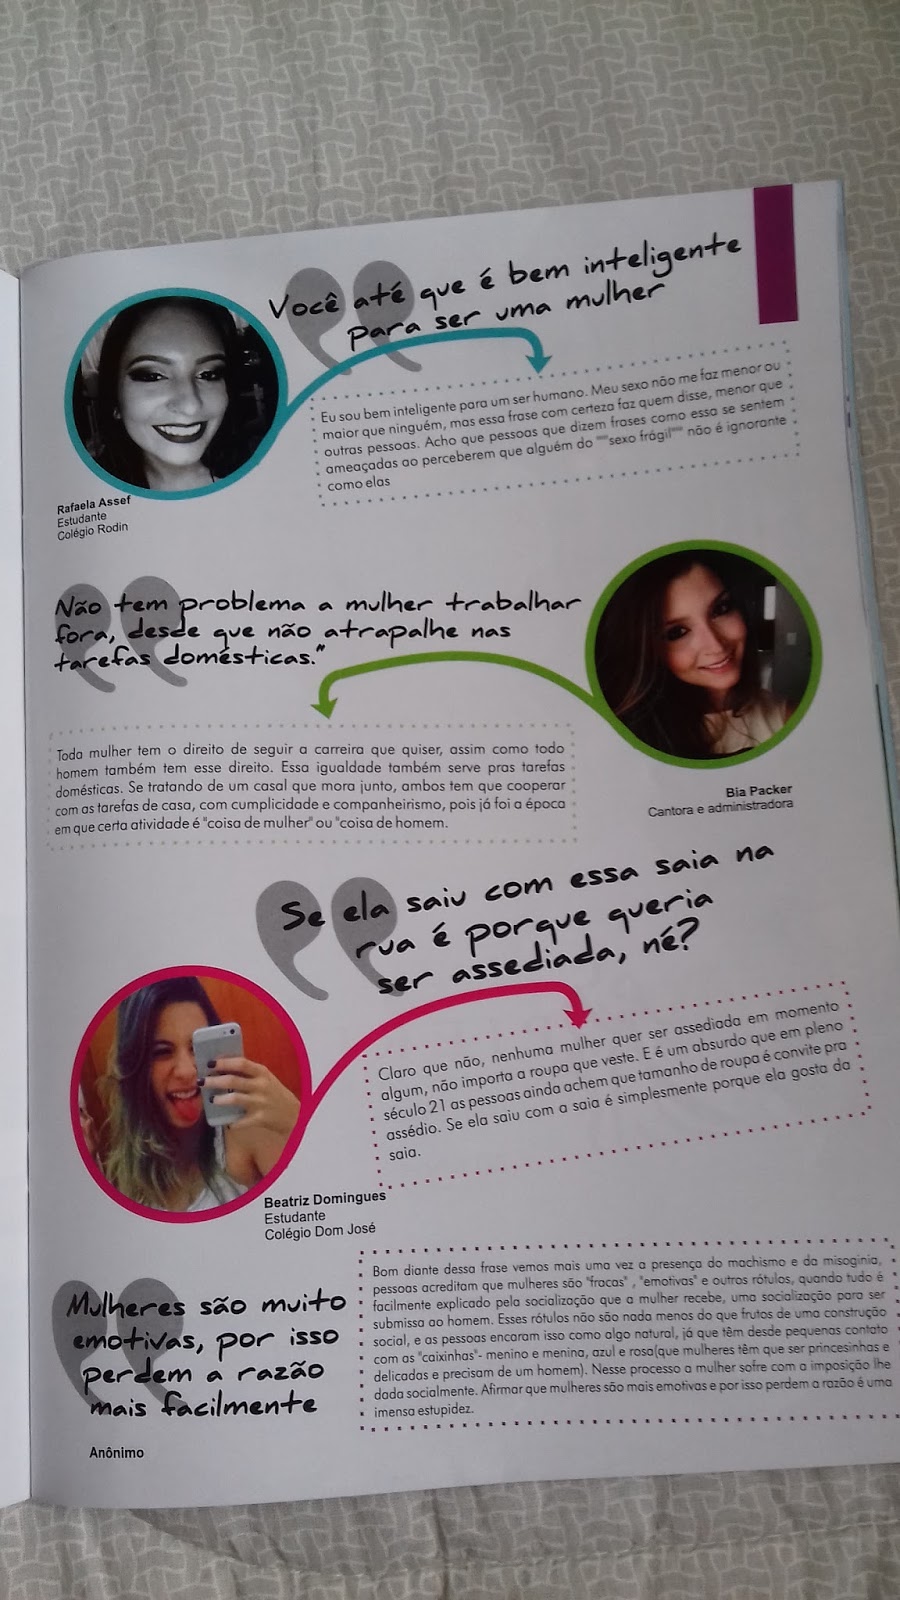 Você até que é bem inteligente
para ser uma mulher
Eu sou bem inteligente para um ser humano. Meu sexo não me faz menor ou
maior que ninguém, mas essa frase com certeza faz quem disse, menor que
outras pessoas. Acho que pessoas que dizem frases como essa se sentem
ameaçadas ao perceberem que alguém do ""sexo frágil"" não é ignorante
como elas
Rafaela Assef
Estudante
Colégio Rodin
Não tem problema a mulher trabalhar
fora, desde que não atrapalhe nas
tarefas domésticas."
Toda mulher tem o direito de seguir a carreira que quiser, assim como todo
homem também tem esse direito. Essa igualdade também serve pras tarefas
domésticas. Se tratando de um casal que mora junto, ambos tem que cooperar
com as tarefas de casa, com cumplicidade e companheirismo, pois já foi a época
em que certa atividade é "coisa de mulher" ou "coisa de homem.
Bia Packer
Cantora e administradora
Se ela saiu com essa saia na
rua é porque queria
ser assediada, né?
Claro que não, nenhuma mulher quer ser assediada em momento
algum, não importa a roupa que veste. E é um absurdo que em pleno
século 21 as pessoas ainda achem que tamanho de roupa é convite pra
assédio. Se ela saiu com a saia é simplesmente porque ela gosta da
saia.
Beatriz Domingues
Estudante
Colégio Dom José
Mulheres são muito
emotivas, por isso
perdem a razão
mais facilmente
Anônimo
Bom diante dessa frase vemos mais uma vez a presença do machismo e da misoginia,
pessoas acreditam que mulheres são "fracas" , "emotivas" e outros rótulos, quando tudo é
facilmente explicado pela socialização que a mulher recebe, uma socialização para ser
submissa ao homem. Esses rótulos não são nada menos do que frutos de uma construção
social, e as pessoas encaram isso como algo natural, já que têm desde pequenas contato
com as "caixinhas"- menino e menina, azul e rosa(que mulheres têm que ser princesinhas e
delicadas e precisam de um homem). Nesse processo a mulher sofre com a imposição lhe
dada socialmente. Afirmar que mulheres são mais emotivas e por isso perdem a razão é uma
imensa estupidez.